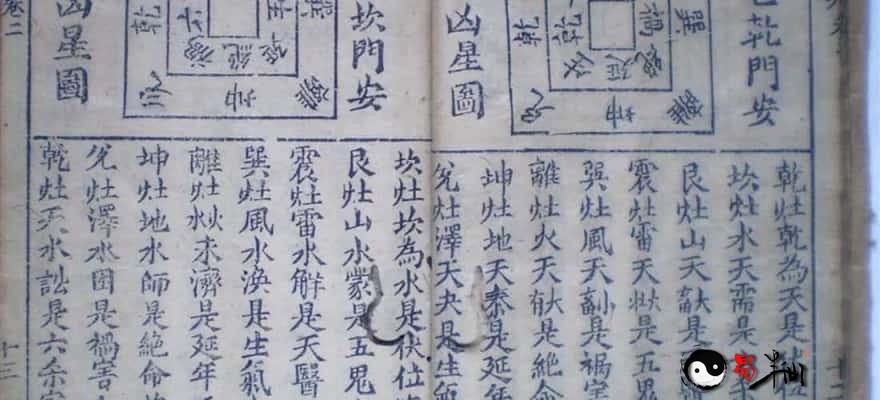 乾門安
凶星圖
巽
禍
乾
離
坤
兌
延
乾灶乾為天是伏位
坎灶水天需是
艮灶山天大畜是
震灶雷天大壯是五鬼
巽灶風天小畜是禍害
離灶火天大有是絕命
坤灶地天泰是延年
兌灶澤天夬是生氣
十二
坎門安
凶星圖
巽
生
乾
六
禍
絕
離
坤
兌
坎灶坎為水是伏位
艮灶山水蒙是五鬼
震灶雷水解是天醫
巽灶風水渙是生氣
離灶火水未濟是延年
坤灶地水師是絕命
兌灶澤水困是禍害
乾灶天水訟是六杀
卷二
十三
易半仙